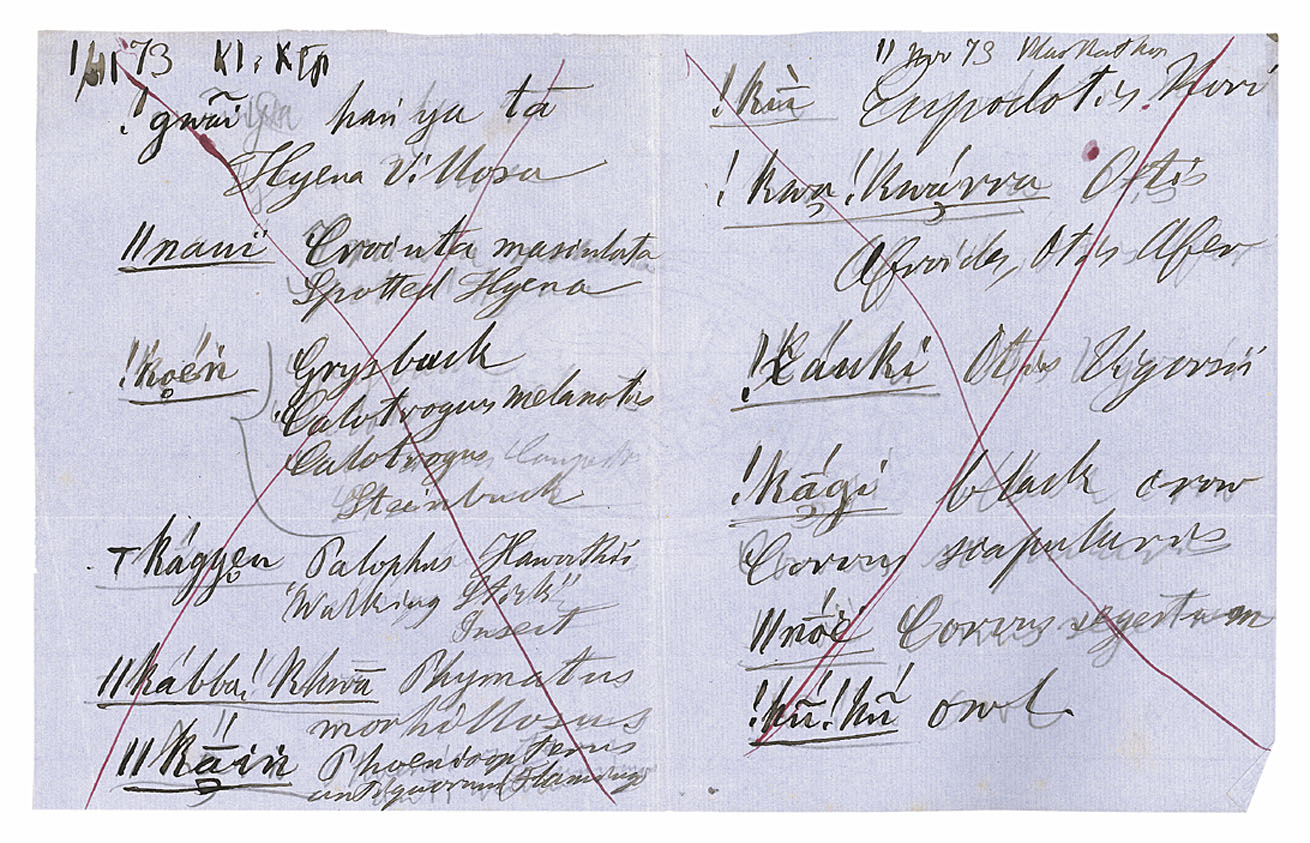 !gwãi han ya tā
Hyena Villosa
||naui Crocuta maculata
Spotted Hyena
!kọén Grysbuck
Calotragus melanotis
Calotragus
Steinbuck
Kágyẹn Palophus Haworthii
"Walking Stick"
Insect
||kábbaǃkhwā Phymatus
morbillosus
||kā́in Phoenicopterus
antiquorum (Flamingo
11 Nov 73
Eupodotis Kori
!kwa̧!kwá̧rra Otis
Afroides, Otis Afer
!káuki Otis Vigorsii
!kā́gi black crow
Corvus scapularis
||nōĕ Corvus segetum
!kū́!kū́ owl.